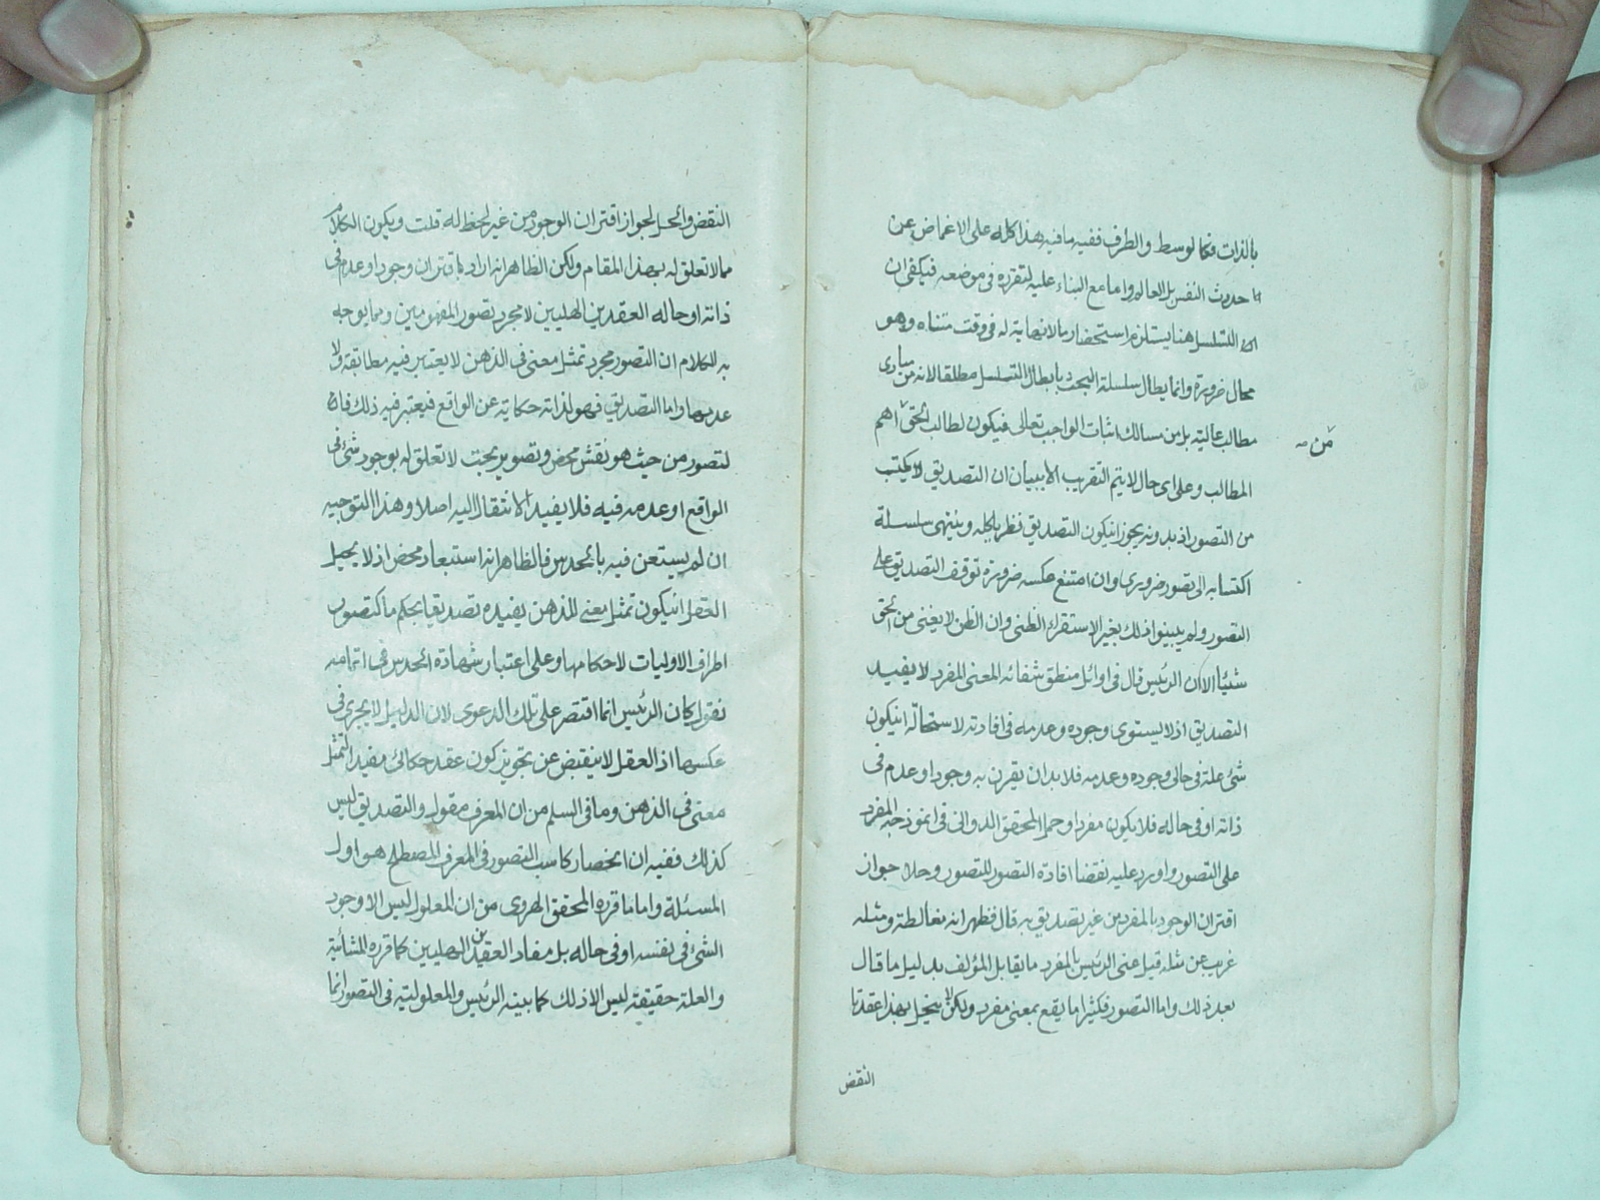 بالذات فكالوسط والطرف ففيه ما فيه هذا كله على الاغماض عن
حدوث النفس بل العالم واما مع البناء عليه لتقرره في موضعه فيكفي ان
التسلسل هنا يستلزم استحضار ما لا نهاية له في وقت متناه وهو
محال ضرورة وانما يطال سلسلة البحث بابطال التسلسل مطلقا لانه من مبادى
مطالب عالية بل من مسالك اثبات الواجب تعالى فيكون لطالب الحق اهم
من
المطالب وعلى اى حال لا يتم التقريب الا ببيان ان التصديق لا يكتسب
من التصور اذ بدونه يجوز انيكون التصديق نظريا كله وينتهى سلسلة
اكتسابه الى تصور ضرورى وان امتنع عكسه ضرورة توقف التصديق على
التصور ولم يبينوا ذلك بغير الاستقراء الظنى وان الظن لا يغنى من الحق
شيئا الا ان الرئيس قال في اوائل منطق شفائه المعنى المفرد لا يفيد
التصديق اذ لا يستوى وجوده وعدمه في افادته لاستحالة انيكون
شئ علة في حالى وجوده وعدمه فلا بد ان يقرن به وجود او عدم في
ذاته او في حاله فلا يكون مفردا وحمل المحقق الدوانى في انموذجه المفرد
على التصور واورد عليه نقضا افادة التصور للتصور وحلا جواز
اقتران الوجود بالمفرد من غير تصديق به قال فظهر انه مغالطة ومثله
غريب عن مثله قيل عنى الرئيس بالمفرد ما يقابل المؤلف بدليل ما قال
بعد ذلك واما التصور فكثيرا ما يقع بمعنى مفرد ولكن لا ينحل بهذا عقدتا
النقض
النقض والحل لجواز اقتران الوجود من غير لحظ له قلت ويكون الكلام
مما لا تعلق له بهذا المقام ولكن الظاهر انه اراد باقتران وجود او عدم في
ذاته او حاله العقدين الهليين لا مجرد تصور المفهومين ومما يوجه
به الكلام ان التصور مجرد تمثل معنى في الذهن لا يعتبر فيه مطابقة ولا
عدمها واما التصديق فهو لذاته حكاية عن الواقع فيعتبر فيه ذلك فاذا
لتصور من حيث هو نقش محض وتصوير بحت لا تعلق له بوجود شئ في
الواقع او عدمه فيه فلا يفيد الانتقال اليه اصلا وهذا التوجيه
ان لم يستعن فيه بالحدس فالظاهر انه استبعاد محض اذ لا يحيل
العقل انيكون تمثل معنى للذهن يفيده تصديقا بحكم ما كتصور
اطراف الاوليات لاحكامها وعلى اعتبار شهادة الحدس في اتمامه
نقول كان الرئيس انما اقتصر على تلك الدعوى لان الدليل لا يجرى في
عكسها اذ العقل لا ينقبض عن تجويز كون عقد حكائى مفيد التمثل
معنى في الذهن وما في السلم من ان المعرف مقول والتصديق ليس
كذلك ففيه ان انحصار كاسب التصور في المعرف المصطلح هو اول
المسئلة واما ما قرره المحقق الهروى من ان المعلول ليس الا وجود
الشئ في نفسه او في حاله بل مفاد العقدين الهليين كما قرره المشائية
والعلة حقيقة ليس الا ذلك كما بينه الرئيس والمعلولية في التصور انما